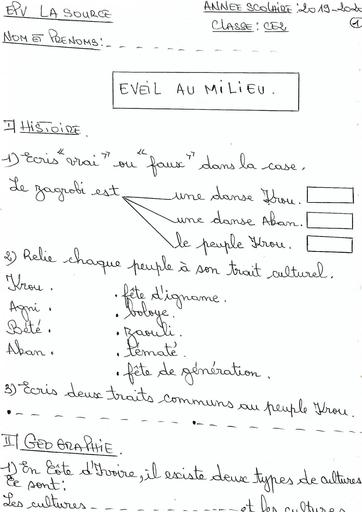 EPV LA SOURCE
ANNEE SCOLAIRE : 2019-2020
CLASSE : CE2
NOM ET PRENOMS : - - - - - - - - - - - -
EVEIL AU MILIEU.
I) HISTOIRE.
1) Ecris "vrai" ou "faux" dans la case.
Le zagrobi est
une danse Krou.
une danse Akan.
le peuple Krou.
2) Relie chaque peuple à son trait culturel.
Krou . . fête d'igname.
Agni . . boloye.
Bété . . zaouli.
Akan . . tématé.
. fête de génération.
3) Ecris deux traits communs au peuple Krou.
. - - - - - - - - - . - - - - - - - - -
II) GEOGRAPHIE.
1) En Côte d'Ivoire, il existe deux types de cultures
Ce sont :
Les cultures - - - - - - - - - - et les cultures